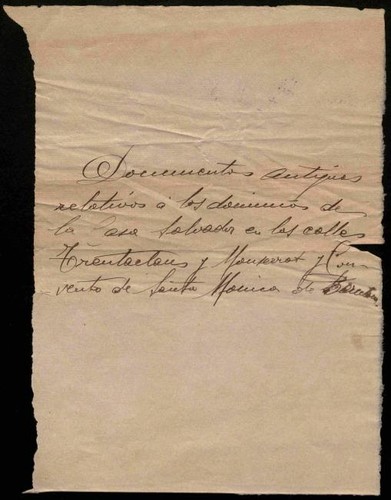 Documentos antigües
relativos á los dominios de
la Casa Salvador en las calles
Trentaclaus y Monserrat y Con-
vento de Santa Monica de